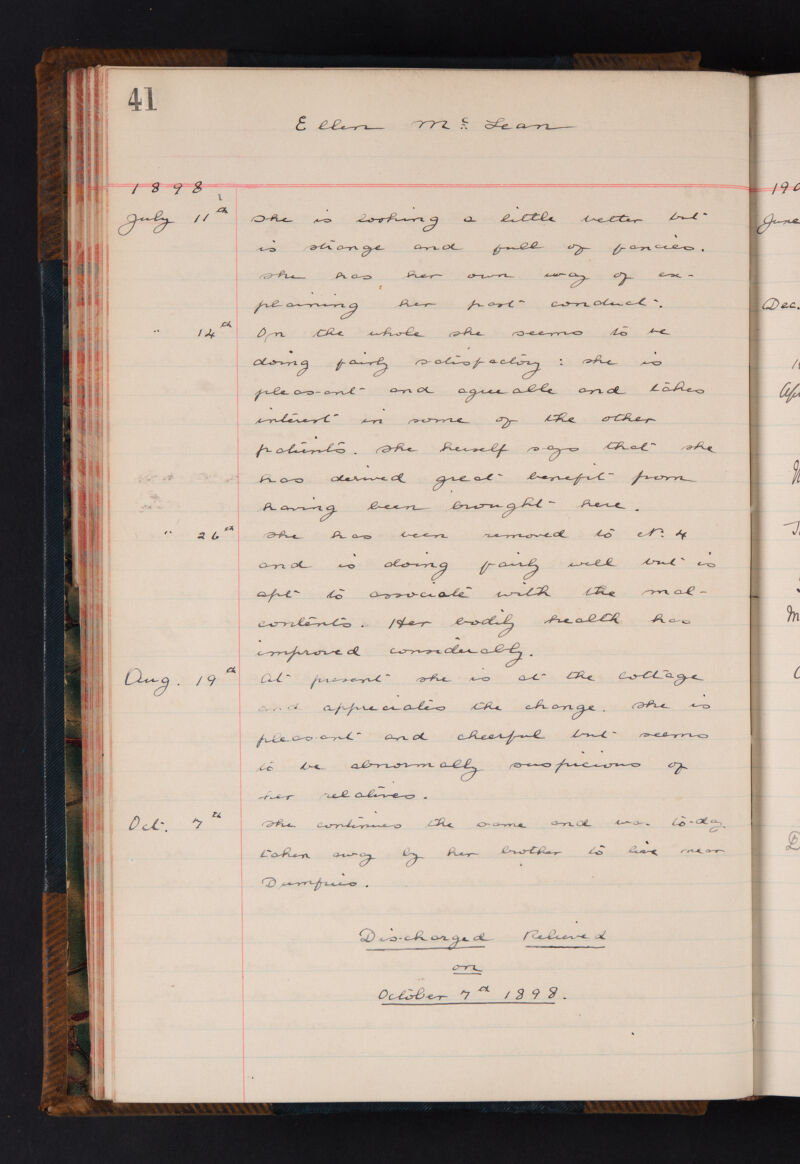 41
Ellen McLean
1898
July 11th She is looking a little better but
is strange and full of fancies.
She has her own way of ex-
plaining her past conduct.
" 14th On the whole she seems to be
doing fairly satisfactory : she is
pleasant and agreeable and takes
interest in some of the other
patients. She herself says that she
has derived great benefit from
having been brought here.
" 26th She has been removed to No. 4
and is doing fairly well but is
apt to associate with the mal-
contents. Her bodily health has
improved considerably.
Aug. 19th At present she is at the cottage
and appreciates the change. She is
pleasant and cheerful but seems
to be abnormally suspicious of
her relatives.
Oct. 7th She continues the same and was to-day
taken away by her brother to live near
Dumfries.
Discharged Relieved
on
October 7th 1898.
190
June
Dec.